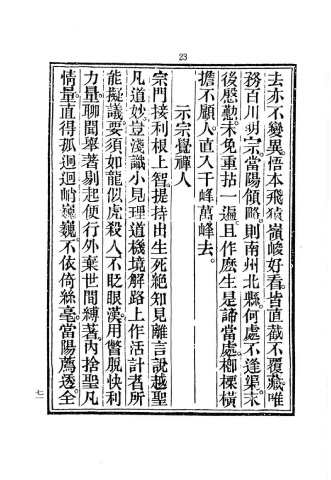 23
去亦不變異。悟本飛猿嶺峻好看。皆直截不覆藏。唯
務百川明宗。當陽領略。則南州北縣。何處不逢渠。末
後慇懃。未免重拈一遍。且作麽生是諦當處。楖𣗖橫
擔不顧人。直入千峰萬峰去。
示宗覺禪人
宗門接利根上智。提持出生死絕知見離言說越聖
凡道妙。豈淺識小見理道機境解路上作活計者所
能擬議。要須如龍似虎殺人不眨眼漢。用瞥脫快利
力量。聊聞舉著。剔起便行。外棄世間縛著。內捨聖凡
情量。直得孤迴迴峭巍巍不依倚絲毫。當陽薦透。全
七一